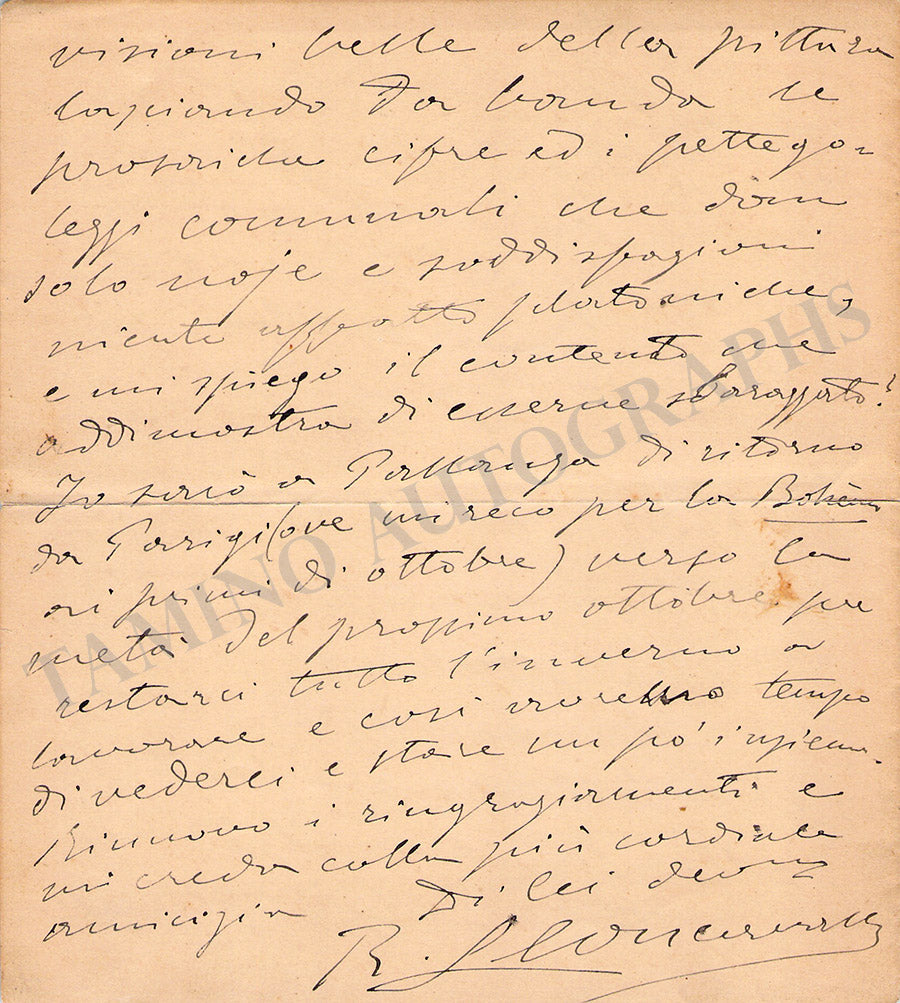 visioni belle della pittura
lasciando da banda le
prosaiche cifre ed i pettego=
lezzi comunali che dan
solo noje e soddisfazioni
niente affatto platoniche,
e mi spiego il contento che
addimostra di esserne sbarazzato!
Io sarò a Pallanza di ritorno
da Parigi (ove mi reco per la Bohème
ai primi di ottobre) verso la
metà del prossimo ottobre per
restarci tutto l'inverno a
lavorare e così avremo tempo
di vederci e stare un po' insieme.
Rinnovo i ringraziamenti e
mi creda colla più cordiale
amicizia Di lei devmo
R. Leoncavallo
TAMINO AUTOGRAPHS